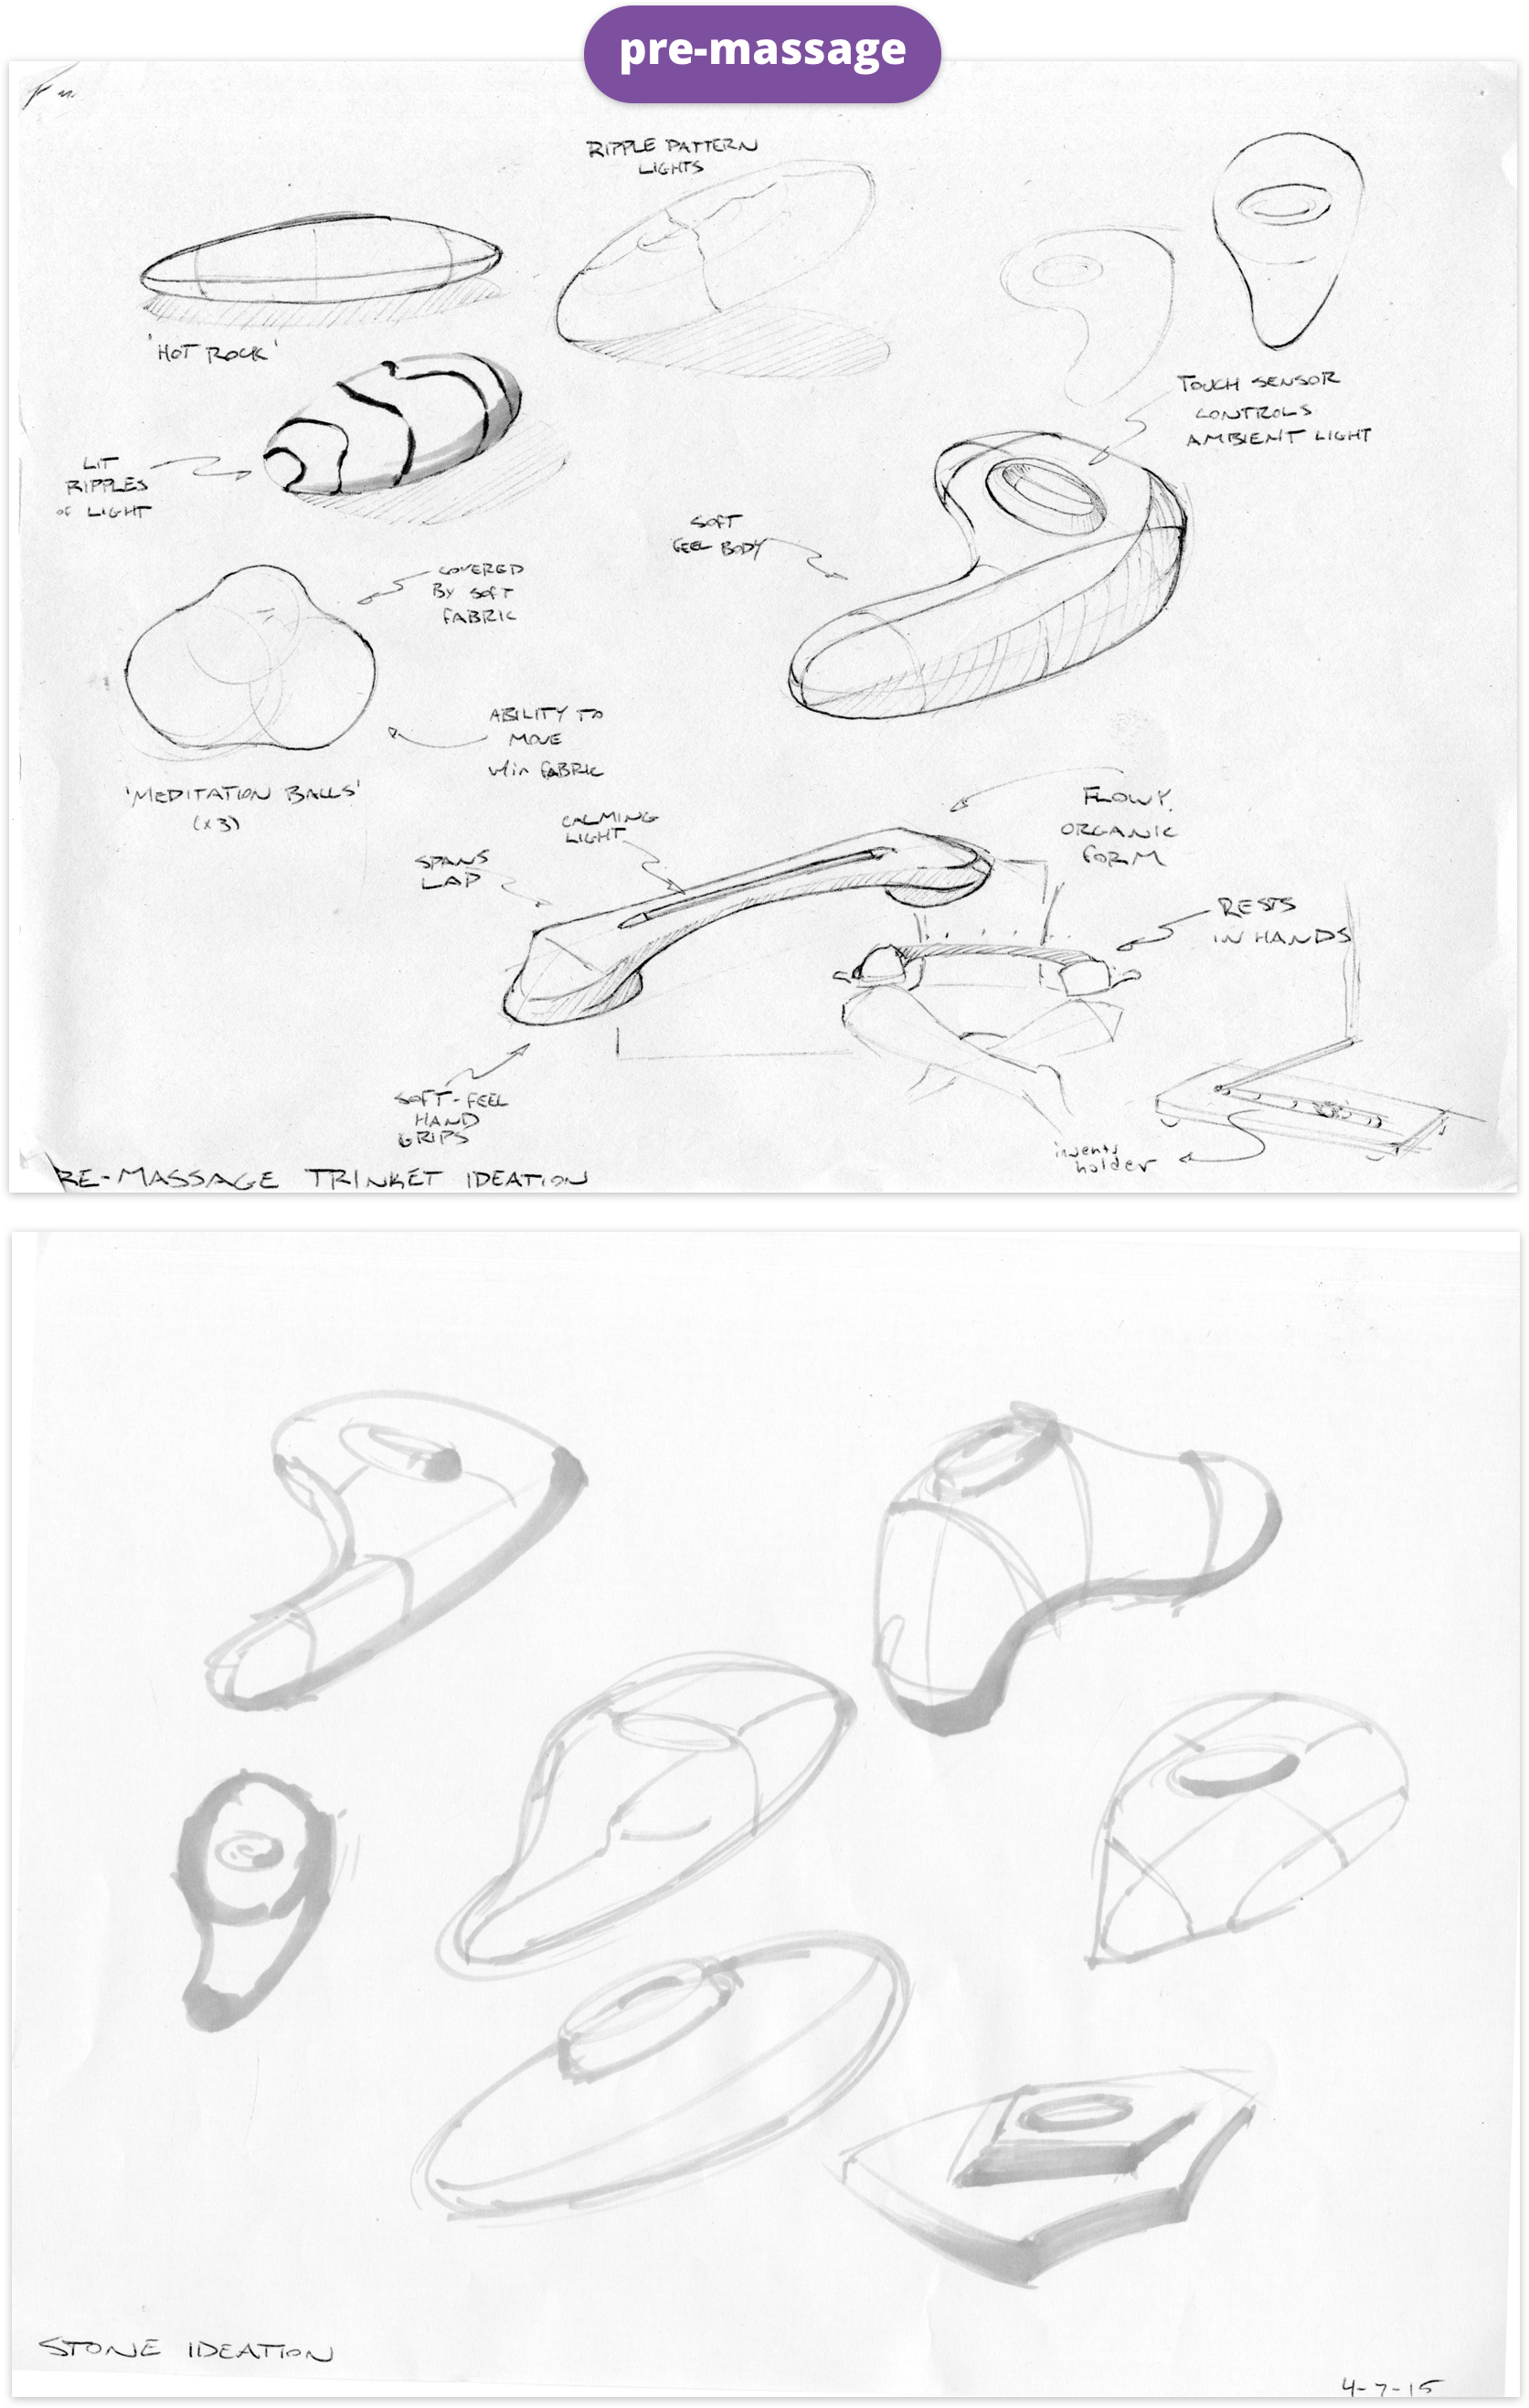 pre-massage
RIPPLE PATTERN
LIGHTS
'HOT ROCK'
TOUCH SENSOR
CONTROLS
AMBIENT LIGHT
LIT
RIPPLES
OF LIGHT
SOFT
FEEL BODY
COVERED
BY SOFT
FABRIC
ABILITY TO
MOVE
w/in FABRIC
'MEDITATION BALLS'
(x3)
CALMING
LIGHT
SPANS
LAP
FLOWY,
ORGANIC
FORM
RESTS
IN HANDS
SOFT-FEEL
HAND
GRIPS
holder
RE-MASSAGE TRINKET IDEATION
STONE IDEATION
4-7-15